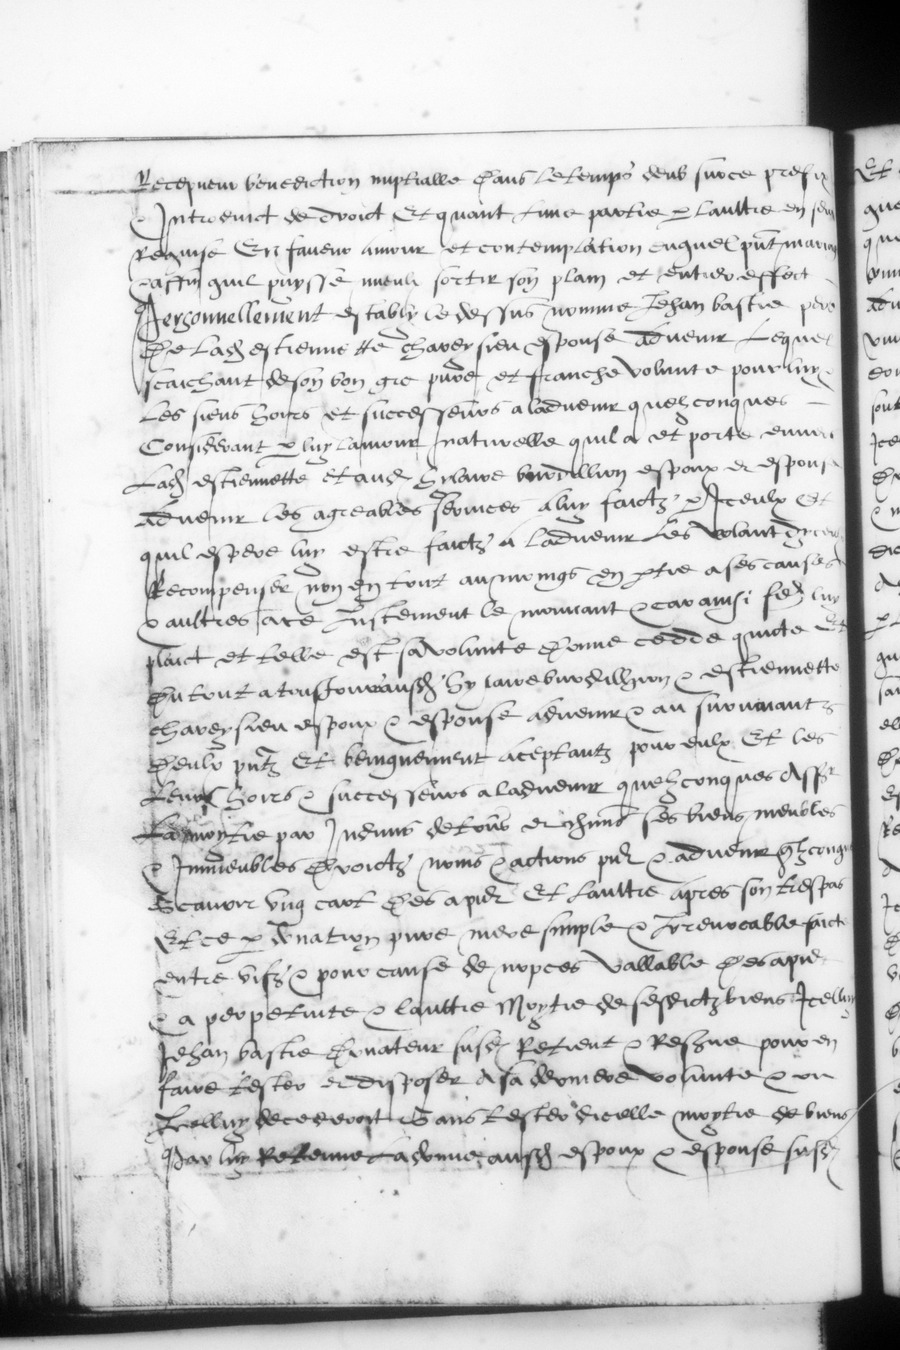 Recepveur benediction nuptialle dans le temps deub sur ce prefix
& Introduict de droict Et quant lune partie p laultre en sera
Requise En faveur amour et contemplation duquel pnt mariage
& affin quil puysse mieulx sortir son plain et entier effect
Personnellement estably le dessus nomme Jehan bastie pere
De lad estiennette espouse advenir Lequel
scaichant de son bon gre pure et franche volunte pour luy
Les siens hoirs et successeurs a ladvenir quelzconques
Considerant p luy lamour naturelle quil a et porte envers
Lad estiennette et aud espoux et espouse
advenir les agreables services a luy faictz p Iceulx Et
quil espere luy estre faictz a ladvenir Les volant dyceulx
Recompenser non en tout au moings en ptie a ses causes
& aultres a ce Justement le mouvant & car ainsi luy
plaict et telle est sa volunte donne cedde quicte Et
Du tout a tousjours ausd & estiennette
espoux & espouse advenir & au survivant
Deulx pntz Et benignement aceptantz pour eulx Et les
Leurs hoirs & successeurs a ladvenir quelzconques
La moytie par Indivis de tous et chuns ses biens meubles
& Immeubles droictz noms & actions pnt & advenir qlzconques
Scavoir ung cart des a pnt Et laultre apres son trespas
Et ce p donation pure mere simple & Irrevocable faicte
entre vifz & pour cause de nopces vallable des a pnt
& a perpetuite & laultre Moytie de sesdictz biens Icelluy
Jehan bastie donateur susd Retient & Reserve pour en
faire tester et disposer a sa derniere volunte & ou
Icelluy decederoit Sans tester dicelle moytie de biens
Par luy Retenue La donne ausd espoux & espouse susd